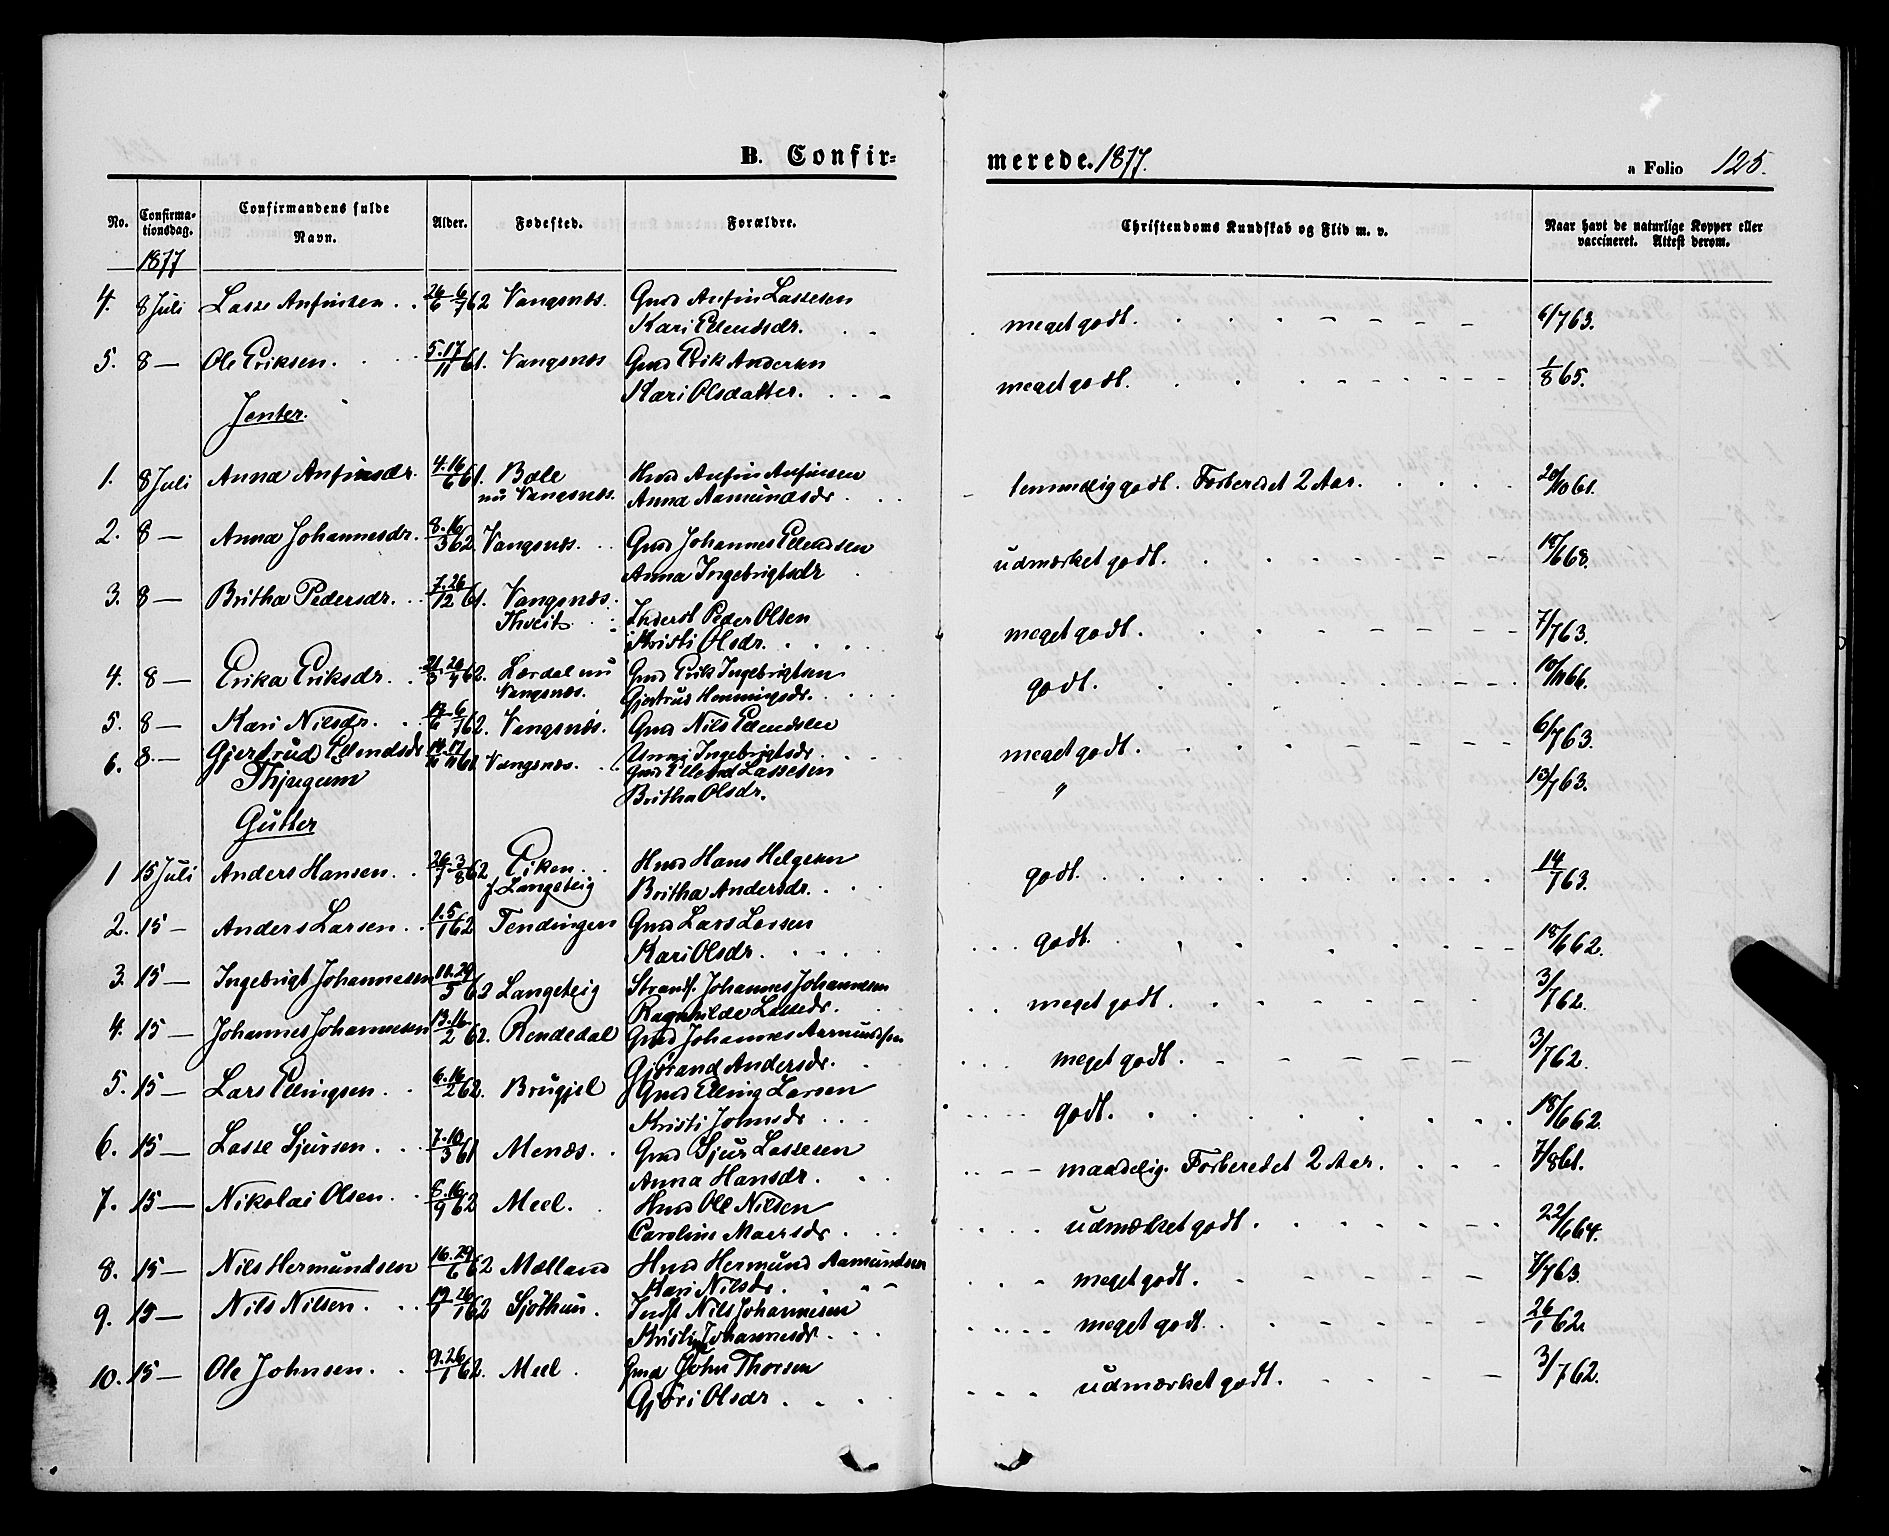 B. Confir=
merede. 1877.
a Folio 125.
No. Confirma-tionsdag. Confirmandens fulde Navn. Alder. Fødested. Forældre. Christendoms Kundskab og Flid m. v. Naar havt de naturlige Kopper eller vaccineret. Attest derom.
1877
4. 8 Juli Lasse Anfinsen 26/6 6/7 62 Vangsnæs. Gmd Anfin Lassesen meget godt. 6/7 63.
Kari Ellendsdr.
5. 8 — Ole Eriksen. 5. 17/11 61. Vangsnæs Gmd Erik Andersen meget godt. 1/8 65.
Kari Olsdatter.
Jenter.
1. 8 Juli Anna Anfinsdr. 4. 16/6 61. Bale Hmd Anfin Anfinsen temmelig godt. Forberedt 2 Aar. 20/10 61.
nu Vangsnæs. Anna Aamundsdr
2. 8 — Anna Johannesdr. 8. 16/3 62. Vangsnæs. Gmd Johannes Ellendsen udmærket godt. 18/6 68.
Anna Ingebrigtsdr
3. 8 — Britha Pedersdr. 7. 26/12 61. Vangsnæs. Inderst Peder Olsen meget godt. 7/7 63.
Thveit Kristi Olsdr.
4. 8 — Erika Eriksdr. 21/3 20/4 62. Lærdal nu Gmd Erik Ingebrigtsen godt. 10/11 66.
Vangsnæs. Gjertrud Henningsdr.
5. 8 — Kari Nilsdr. 17/6 6/7 62. Vangsnæs. Gmd Nils Ellendsen meget godt. 6/7 63.
Unni Ingebrigtsdr.
6. 8. — Gjertrud Ellendsdr 17/11 61 Vangsnæs. Gmd Ellend Lassesen " 13/7 63.
Thjugum Britha Olsdr.
Gutter
1 15 Juli Anders Hansen. 26/7 3/8 62 Eiken. Hmd Hans Helgesen godt. 14/7 63.
f. Langeteig Britha Andersdr.
2. 15 — Anders Larsen. 1. 5/1 62 Tendingen Gmd Lars Larsen godt. 18/6 62.
Kari Olsdr.
3. 15 — Ingebrigt Johannesen 11. 29/5 62 Langeteig Strands. Johannes Johannesen meget godt. 3/7 62.
Ragnhilde Lassedr.
4. 15 — Johannes Johannesen 13. 16/2 62. Rendedal Gmd Johannes Aamundsen meget godt. 3/7 62.
Gjörand Andersdr.
5. 15 — Lars Ellingsen. 6. 16/2 62. Brugjel Gmd Elling Larsen godt. 18/6 62.
Kristi Johnsdr
6. 15 — Lasse Sjursen. 7. 10/3 61 Menæs. Gmd Sjur Lassesen maadelig. Forberedet 2 Aar. 7/8 61.
Anna Hansdr.
7. 15 — Nikolai Olsen. 8. 16/9 62 Meel. Hmd Ole Nilsen udmærket godt. 22/6 64.
Caroline Maersdr.
8. 15 — Nils Hermundsen 16. 29/6 62 Mælland Hmd Hermund Aamundsen meget godt. 7/7 63.
Kari Nilsdr.
9. 15 — Nils Nilsen. 26/1 62 Sjöthun. Indst Nils Johannesen meget godt. 26/1 62.
Kristi Johannesdr.
10. 15 — Ole Johnsen. 9. 26/1 62. Meel. Gmd John Thorsen udmærket godt. 3/7 62.
Gjöri Olsdr